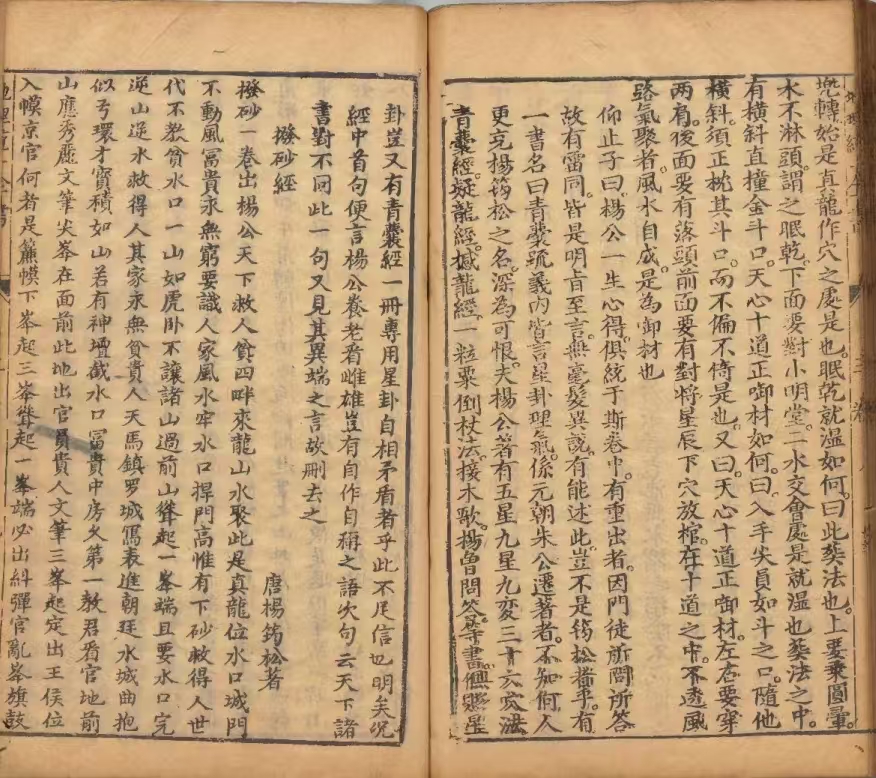 兠轉始是真龍作穴之處是也眠乾就溫如何曰此葬法也上要乘圓暈
水不淋頭謂之眠乾下面要對小明堂二水交會處是就溫也葬法之中
有橫斜直撞金斗口天心十道正啣材如何曰入手尖員如斗之口隨他
橫斜須正枕其斗口而不偏不倚是也又曰天心十道正啣材左右要穿
兩肩後面要有落頭前面要有對將星辰下穴放棺在十道之中不透風
路氣聚者風水自成是為啣材也
仰止子曰楊公一生心得俱統于斯卷中有重出者因門徒所問所答
故有雷同皆是明肯至言無毫髮異說有能述此豈不是筠松猶乎有
一書名曰青囊疏義內皆言星卦理氣係元朝朱公遷著者不知何人
更充楊筠松之名深為可恨夫楊公著有五星九星九変三十六穴法
青囊經疑龍經撼龍經一粒粟倒杖法接木歌楊曾問答等書俱貶星
卦豈又有青囊經一冊專用星卦自相矛盾者乎此不足信也明矣况
經中首句便言楊公養老看雌雄豈有自作自稱之語次句云天下諸
書對不同此一句又見其異端之言故刪去之
撥砂經
唐楊筠松著
撥砂一卷出楊公天下救人貧四畔來龍山水聚此是真龍位水口城門
不動風冨貴永無窮要識人家風水牢水口捍門高惟有下砂救得人世
代不教貧水口一山如虎卧不讓諸山過前山聳起一峯端且要水口完
逆山逆水救得人其家永無貧貴人天馬鎮罗城寫表進朝廷水城曲抱
似弓環才寳積如山若有神壇截水口冨貴中房久第一教君看官地前
山應秀麗文筆尖峯在面前此地出官員貴人文筆三峯起定出王侯位
入幙京官何者是簾幙下峯起三峯聳起一峯端必出糾彈官亂峯旗鼓